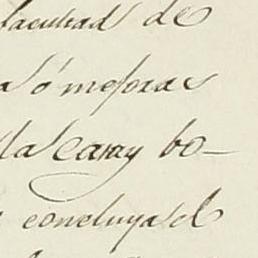 facultad de
ó mejorar
la Casa y bo-
concluya el